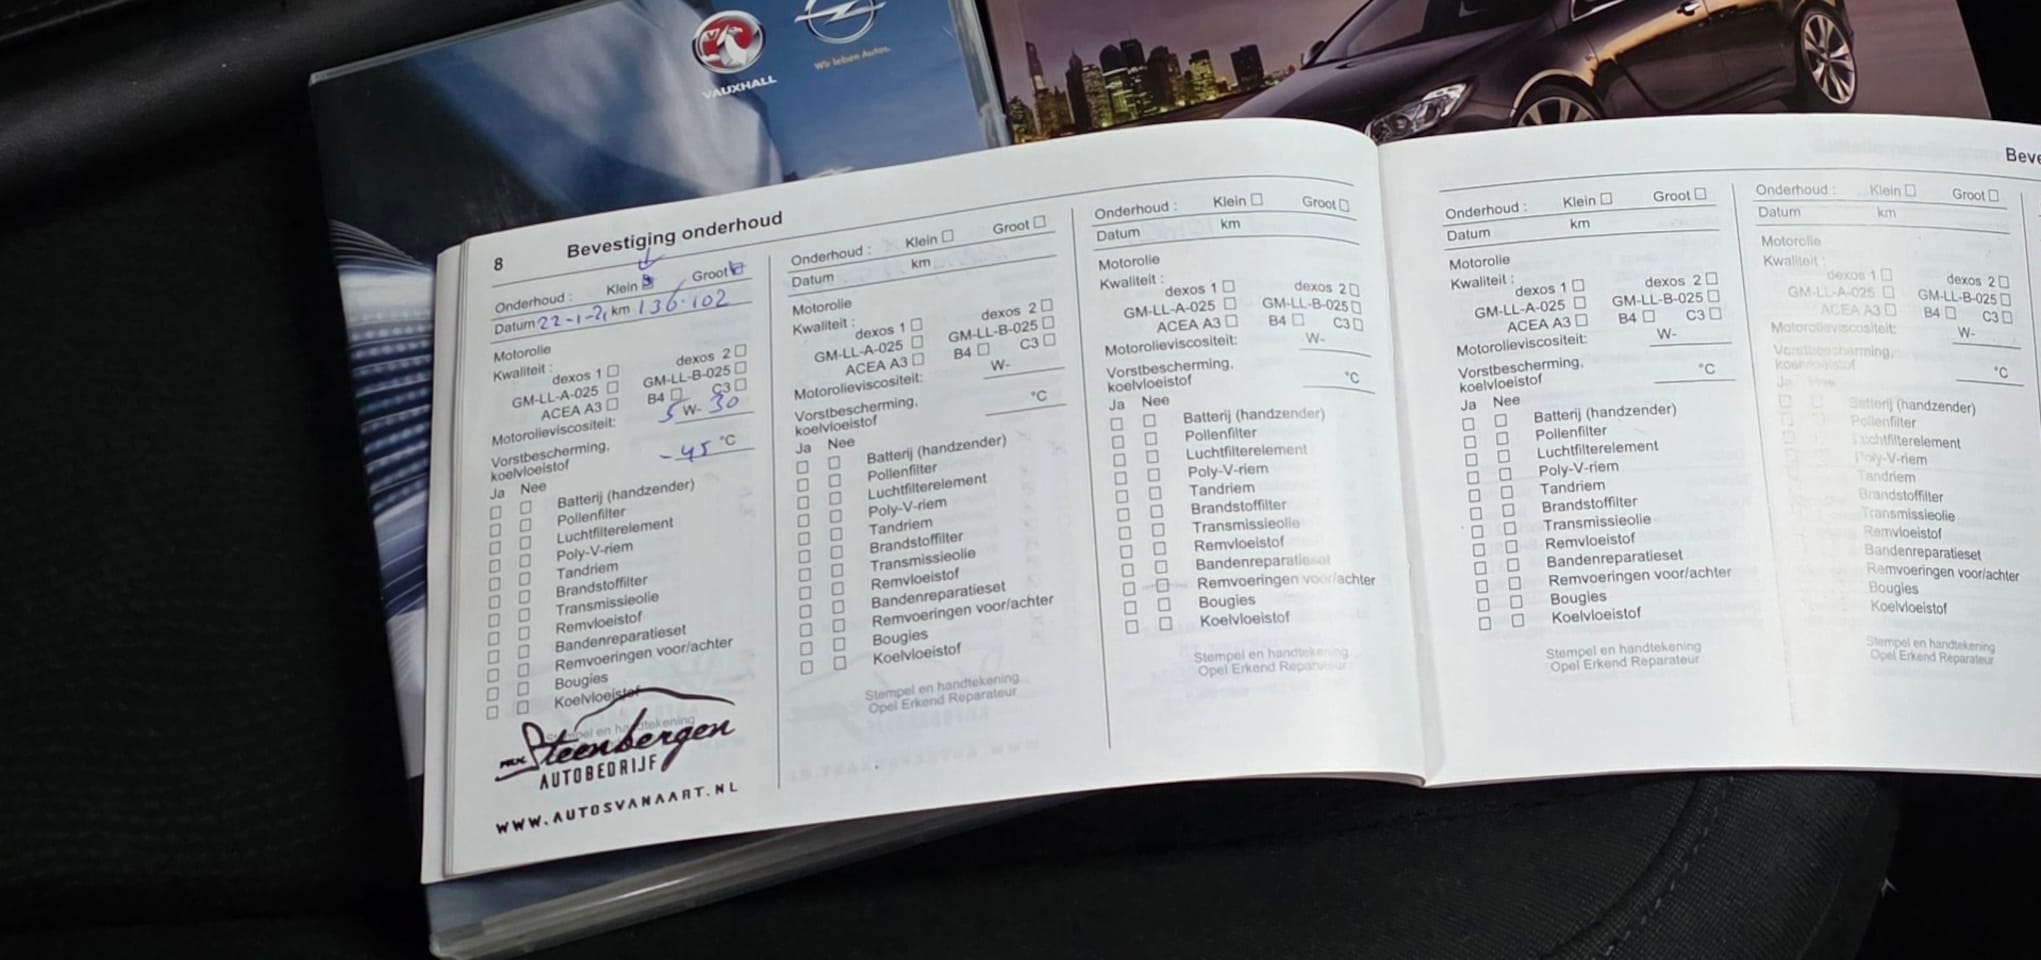 VAUXHALL
Wir leben Autos.
8
Bevestiging onderhoud
Onderhoud : Klein Groot
Datum 22-1-21 km 136.102
Motorolie
Kwaliteit :
dexos 1 dexos 2
GM-LL-A-025 GM-LL-B-025
ACEA A3 B4 C3
Motorolieviscositeit: 5 W- 30
Vorstbescherming,
koelvloeistof -45 °C
Ja Nee
Batterij (handzender)
Pollenfilter
Luchtfilterelement
Poly-V-riem
Tandriem
Brandstoffilter
Transmissieolie
Remvloeistof
Bandenreparatieset
Remvoeringen voor/achter
Bougies
Koelvloeistof
Stempel en handtekening
Steenbergen
AUTOBEDRIJF
WWW.AUTOSVANAART.NL
Onderhoud : Klein Groot
Datum km
Motorolie
Kwaliteit :
dexos 1 dexos 2
GM-LL-A-025 GM-LL-B-025
ACEA A3 B4 C3
Motorolieviscositeit: W-
Vorstbescherming,
koelvloeistof °C
Ja Nee
Batterij (handzender)
Pollenfilter
Luchtfilterelement
Poly-V-riem
Tandriem
Brandstoffilter
Transmissieolie
Remvloeistof
Bandenreparatieset
Remvoeringen voor/achter
Bougies
Koelvloeistof
Stempel en handtekening
Opel Erkend Reparateur
Onderhoud : Klein Groot
Datum km
Motorolie
Kwaliteit :
dexos 1 dexos 2
GM-LL-A-025 GM-LL-B-025
ACEA A3 B4 C3
Motorolieviscositeit: W-
Vorstbescherming,
koelvloeistof °C
Ja Nee
Batterij (handzender)
Pollenfilter
Luchtfilterelement
Poly-V-riem
Tandriem
Brandstoffilter
Transmissieolie
Remvloeistof
Bandenreparatieset
Remvoeringen voor/achter
Bougies
Koelvloeistof
Stempel en handtekening
Opel Erkend Reparateur
Beve
Onderhoud : Klein Groot
Datum km
Motorolie
Kwaliteit :
dexos 1 dexos 2
GM-LL-A-025 GM-LL-B-025
ACEA A3 B4 C3
Motorolieviscositeit: W-
Vorstbescherming,
koelvloeistof °C
Ja Nee
Batterij (handzender)
Pollenfilter
Luchtfilterelement
Poly-V-riem
Tandriem
Brandstoffilter
Transmissieolie
Remvloeistof
Bandenreparatieset
Remvoeringen voor/achter
Bougies
Koelvloeistof
Stempel en handtekening
Opel Erkend Reparateur
Onderhoud : Klein Groot
Datum km
Motorolie
Kwaliteit :
dexos 1 dexos 2
GM-LL-A-025 GM-LL-B-025
ACEA A3 B4 C3
Motorolieviscositeit: W-
Vorstbescherming,
koelvloeistof °C
Ja Nee
Batterij (handzender)
Pollenfilter
Luchtfilterelement
Poly-V-riem
Tandriem
Brandstoffilter
Transmissieolie
Remvloeistof
Bandenreparatieset
Remvoeringen voor/achter
Bougies
Koelvloeistof
Stempel en handtekening
Opel Erkend Reparateur